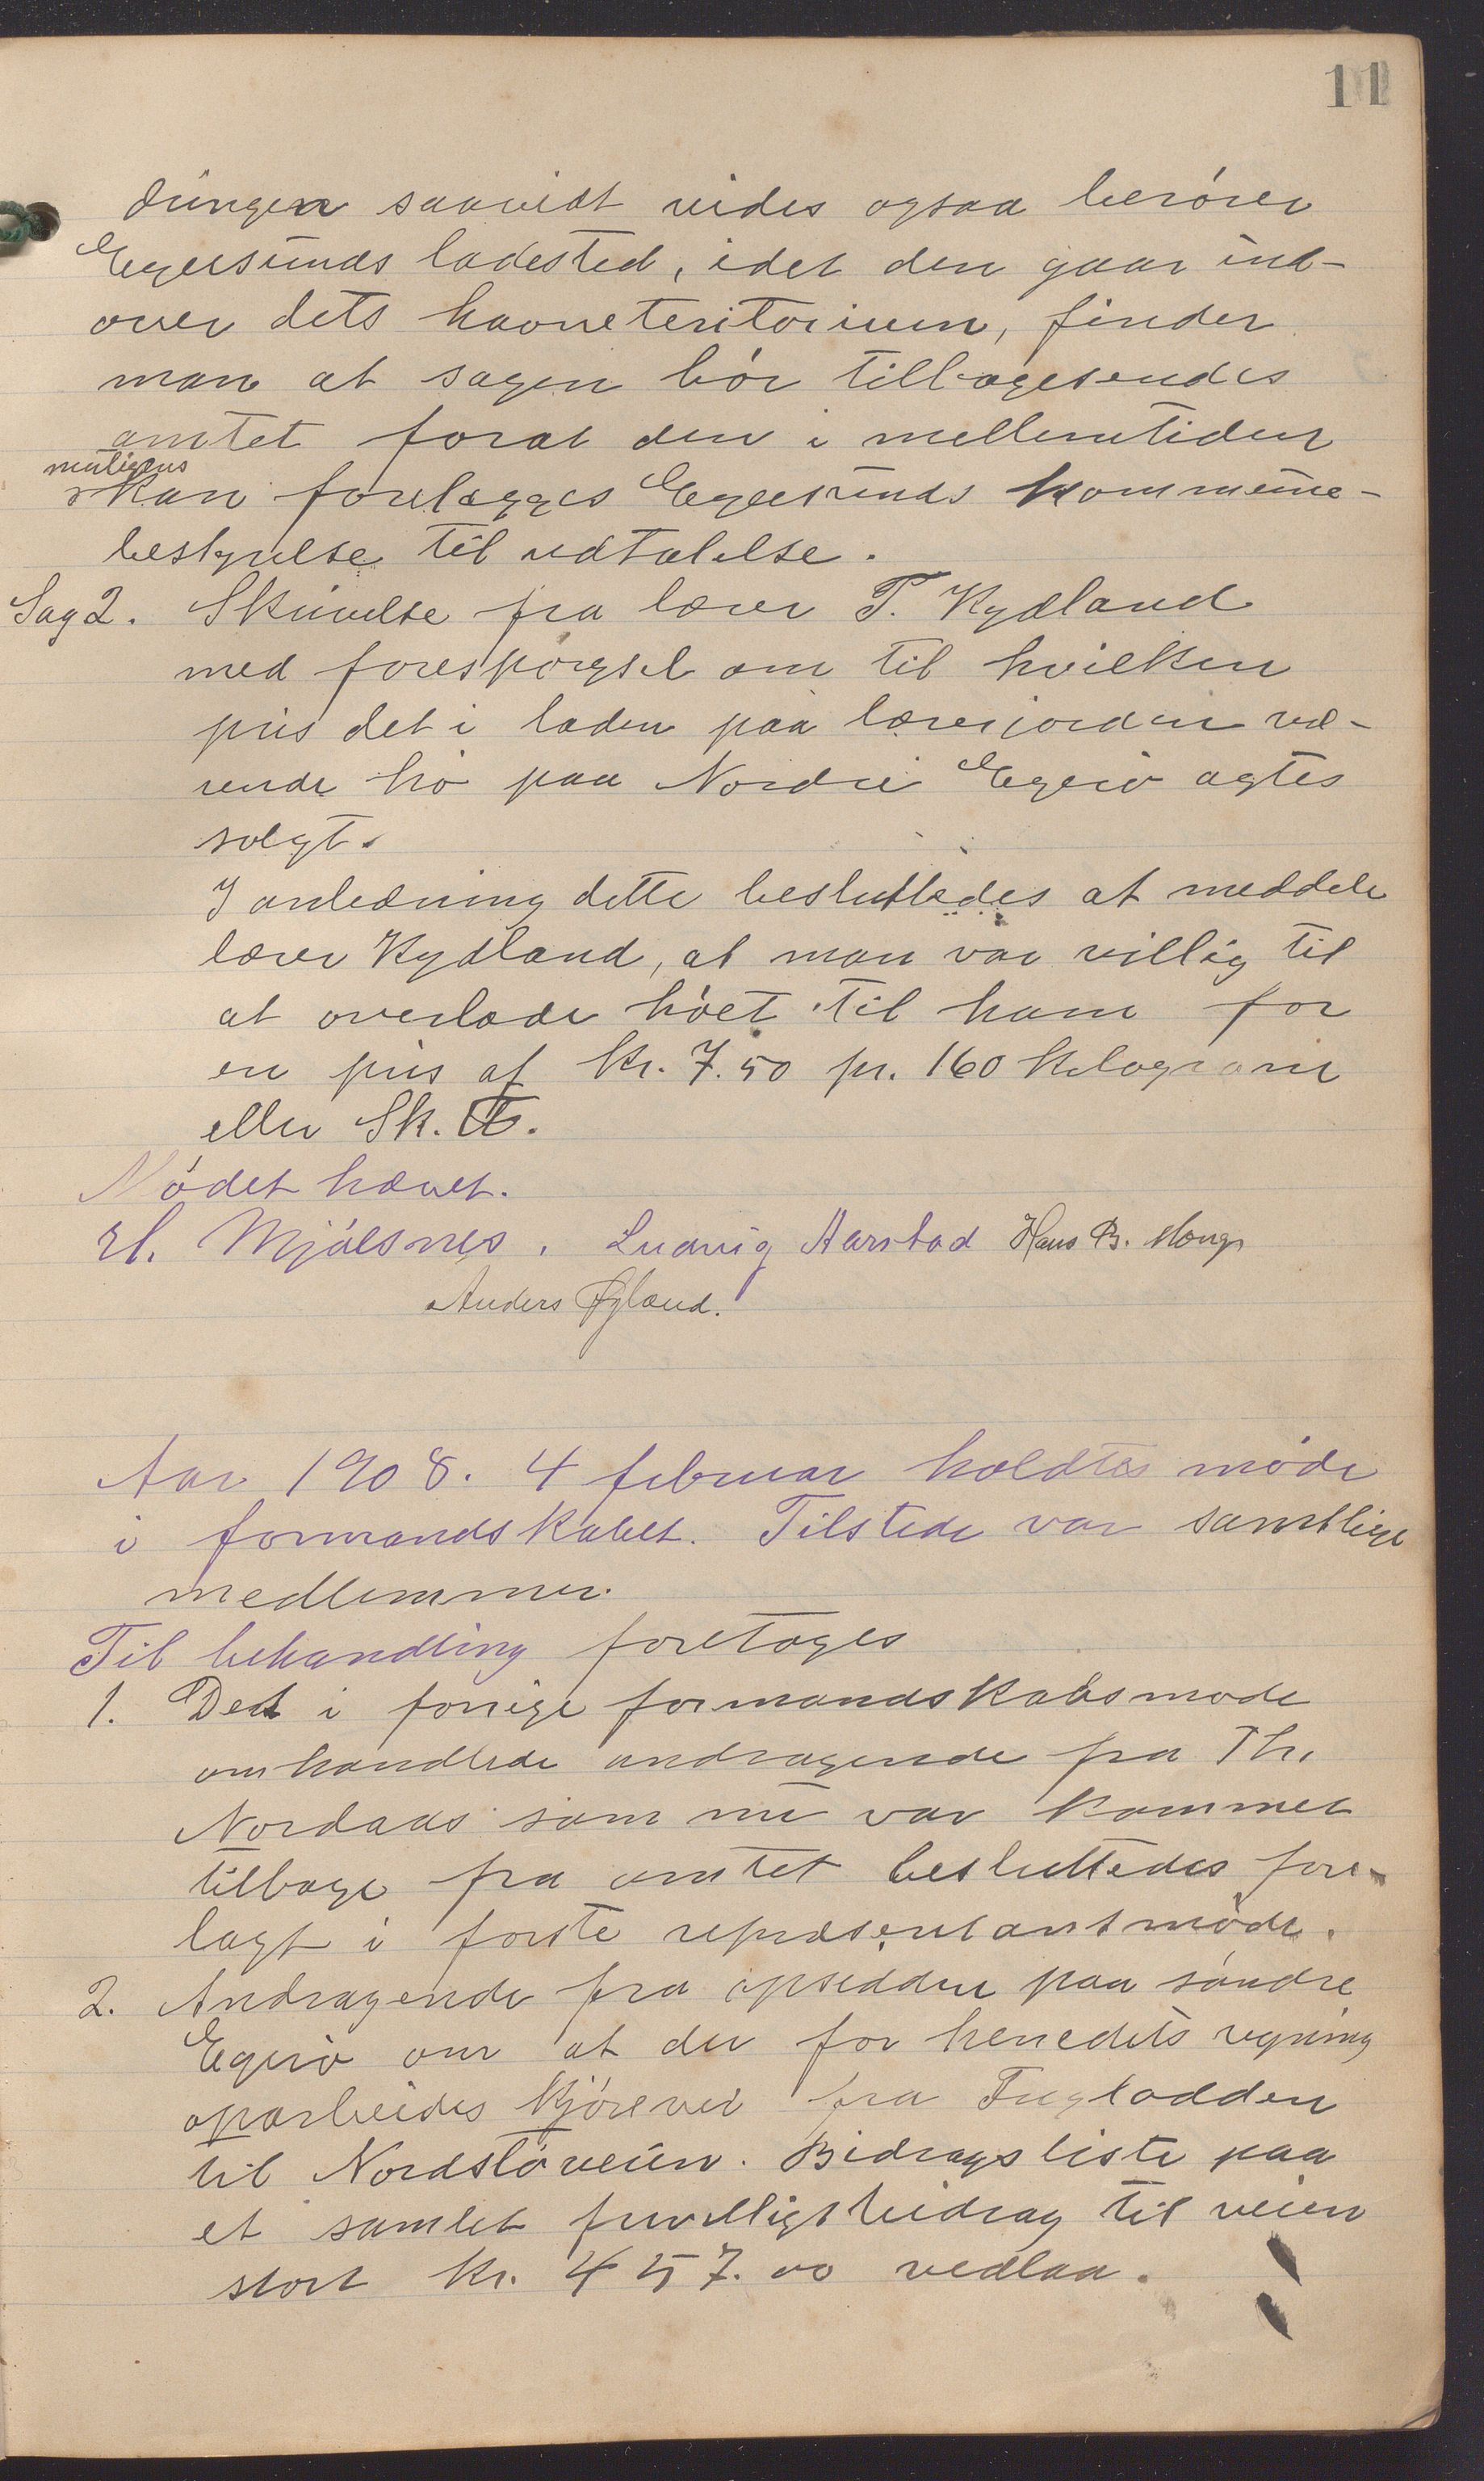 11
dungen saavidt vides ogsaa berører
Egersunds ladested, idet den gaar ind-
over dets havneteritorium, finder
man at sagen bør tilbagesendes
amtet forat den i mellemtiden
muligens
kan forelægges Egersunds kommune-
bestyrelse til udtalelse.
Sag 2. Skrivelse fra lærer T. Kydland
med forespørgsel om til hvilken
pris det i laden paa lærerjorden væ-
rende hø paa Nordre Egerø agtes
solgt.
I anledning dette besluttedes at meddele
lærer Kydland, at man var villig til
at overlade høet til ham for
en pris af kr. 7.50 pr. 160 kilogram
eller Sk. ℔.
Mødet hævet.
H. Mjølsnes. Ludvig Aarstad Hans B. Mong
Anders Øgland.
Aar 1908. 4 februar holdtes møde
i formandskabet. Tilstede var samtlige
medlemmer.
Til behandling foretoges
1. Det i forrige formandskabsmøde
omhandlede andragende fra Th.
Nordaas som nu var kommet
tilbage fra amtet besluttedes fore-
lagt i første repræsentantmøde.
2. Andragende fra opsiddere paa søndre
Egerø om at der for herredets regning
oparbeides kjørevei fra Fuglodden
til Nordstøveien. Bidragsliste paa
et samlet frivilligt bidrag til veien
stort kr. 457.00 vedlaa.